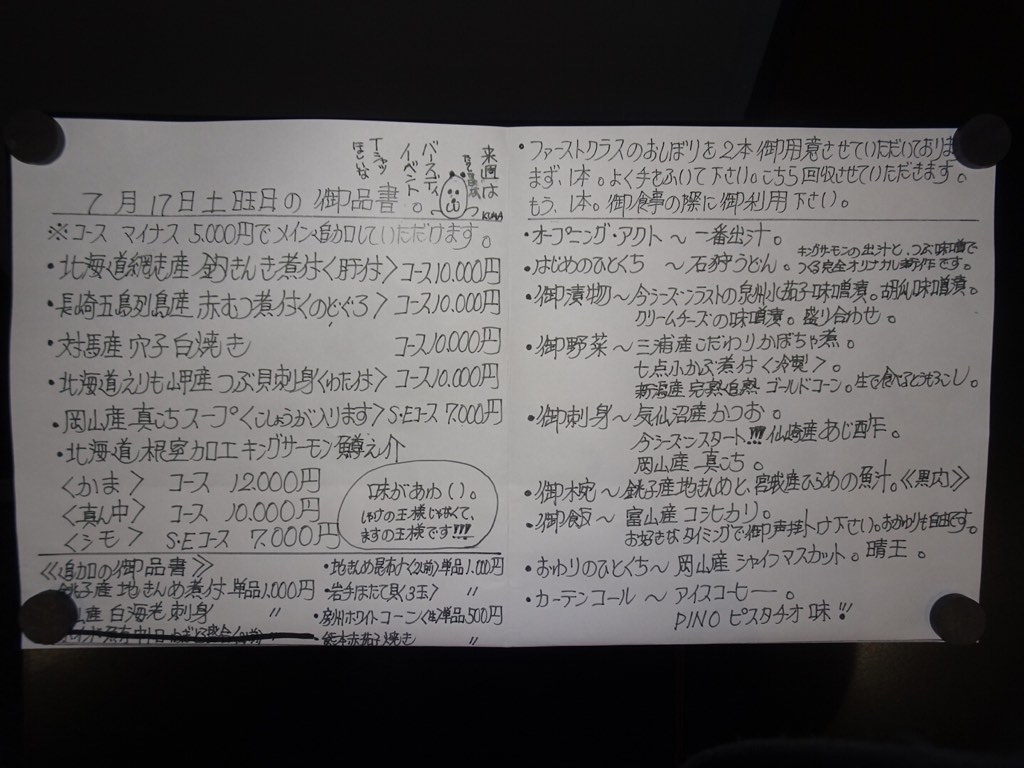 7月17日土旺日の御品書。
来週は
バースディ
イベント
Tシャツ
ほしいな
KUMA
※コース マイナス 5,000円でメイン追加していただけます。
・北海道網走産 釣きんき煮付〈肝付〉コース10,000円
・長崎五島列島産 赤むつ煮付〈のどぐろ〉コース10,000円
・対馬産 穴子白焼き コース10,000円
・北海道えりも岬産 つぶ貝刺身〈わた付〉コース10,000円
・岡山産 真こちスープ〈こしょうが入ります〉S・Eコース 7,000円
・北海道、根室加工 キングサーモン 鱒之介
〈かま〉 コース 12,000円
〈真ん中〉 コース 10,000円
〈シモ〉 S・Eコース 7,000円
味があゆ()。
しゃけの王様じゃなくて、
ますの王様です!!!
《追加の御品書》
銚子産 地きんめ煮付 単品1,000円
産 白海老刺身 〃
・地きんめ昆布〆〈2切〉単品1,000円
・岩手ほたて貝〈3玉〉 〃
・房州ホワイトコーン〈生〉単品500円
・熊本赤茄子焼き 〃
・ファーストクラスのおしぼりを2本御用意させていただいておりま
まず、1本。よく手をふいて下さい。こちら回収させていただきます。
もう、1本。御食事の際に御利用下さい。
・オープニング・アクト〜一番出汁。
・はじめのひとくち 〜 石狩うどん。キングサーモンの出汁と、つぶ味噌で
つくる完全オリジナル新作です。
・御漬物〜今シーズンラストの泉州水茄子味噌漬。胡瓜味噌漬。
クリームチーズの味噌漬。盛り合わせ。
・御野菜〜三浦産こだわりかぼちゃ煮。
七点小かぶ煮付〈冷製〉
新潟産 完熟追熟 ゴールドコーン。生で食べるとうもろこし。
・御刺身〜気仙沼産かつお。
今シーズンスタート!!!仙崎産あじ酢〆。
岡山産 真こち。
・御椀〜銚子産地きんめと、産ひらめの魚汁。《黒内》
・御飯〜富山産コシヒカリ。
お好きなタイミングで御声掛け下さい。おかゆりも自由です。
・おわりのひとくち〜岡山産 シャインマスカット。晴王。
・カーテンコール 〜 アイスコーヒー。
PINO ピスタチオ味!!